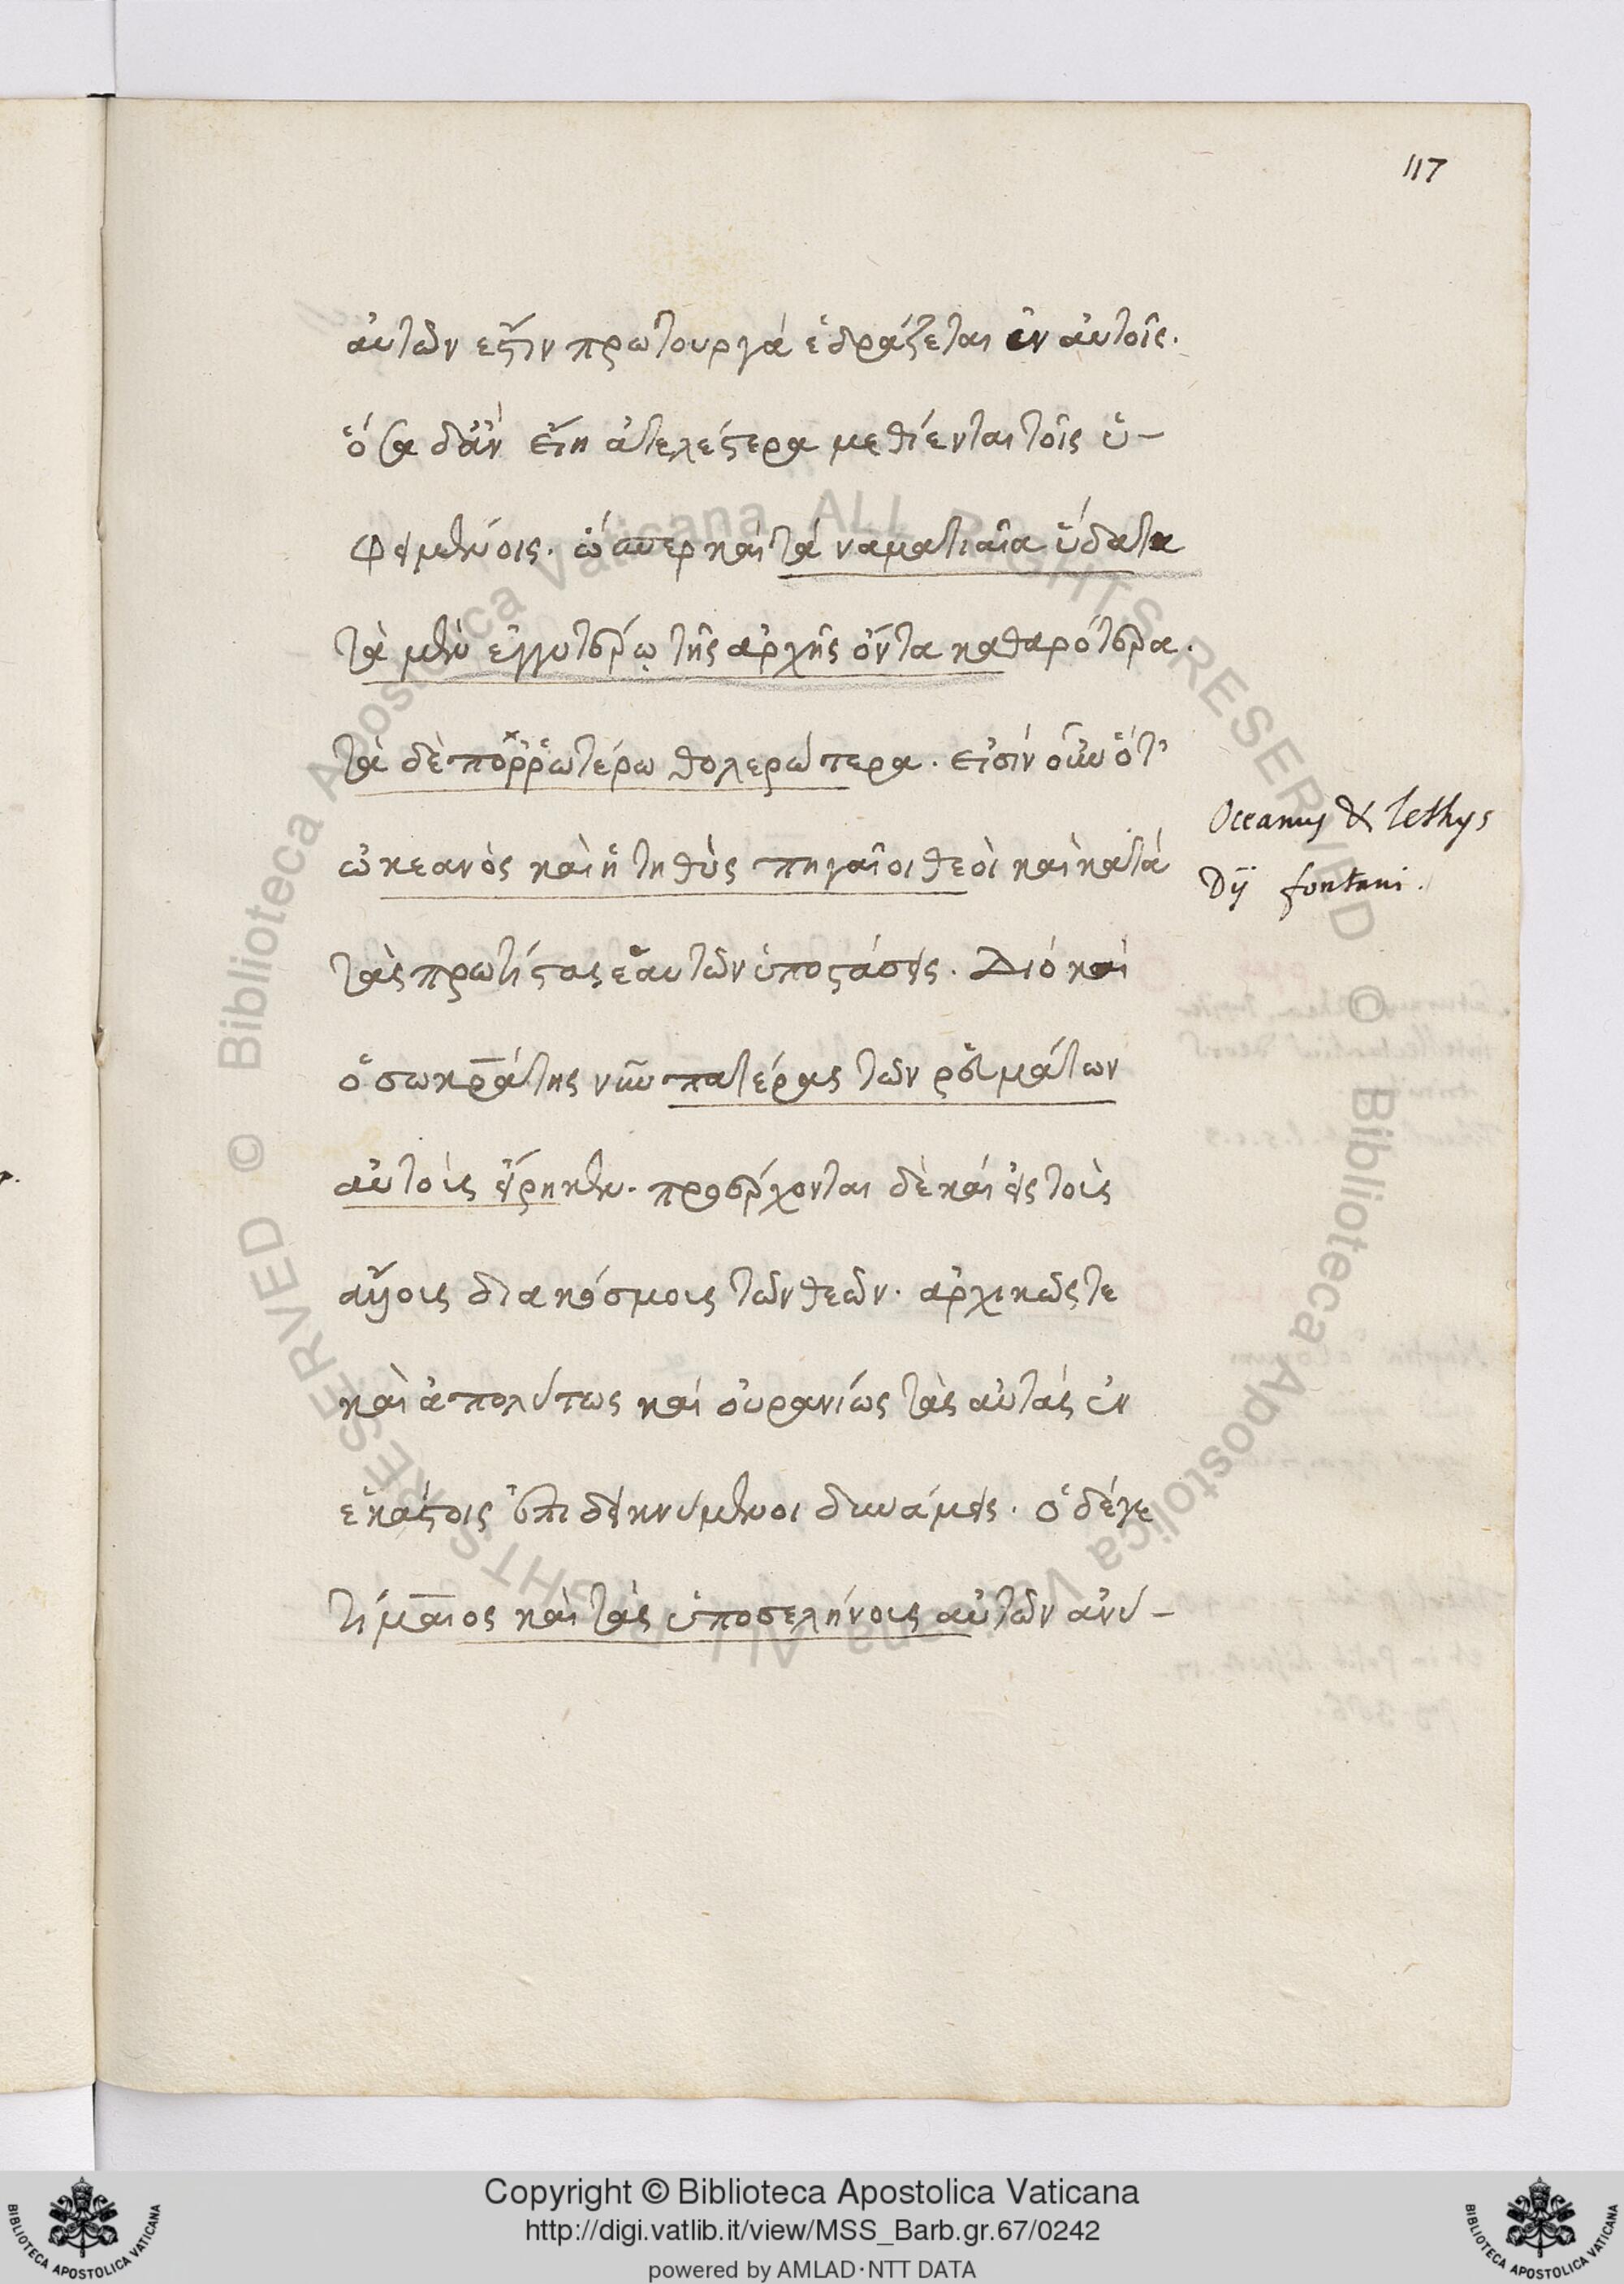 117
αὐτῶν ἐστὶν πρωτουργὰ ἑδράζεται ἐν αὐτοῖς.
ὅσα δ' ἂν εἴη ἀτελέστερα μεθίενται τοῖς ὑ-
φειμένοις. ὥσπερ καὶ τὰ ναματιαῖα ὕδατα
τὰ μὲν ἐγγυτέρω τῆς ἀρχῆς ὄντα καθαρότερα.
τὰ δὲ ποῤῥωτέρω θολερώτερα. εἰσὶν οὖν ὅτ'
ὠκεανὸς καὶ ἡ τηθὺς πηγαῖοι θεοὶ καὶ κατὰ
Oceanus & Tethys
Dij fontani.
τὰς πρωτίστας ἑαυτῶν ὑποστάσεις. Διὸ καὶ
ὁ σωκράτης νῦν πατέρας τῶν ῥευμάτων
αὐτοὺς εἴρηκεν. προσέρχονται δὲ καὶ εἰς τοὺς
ἄλλους διακόσμους τῶν θεῶν. ἀρχικῶς τε
καὶ ἀπολύτως καὶ οὐρανίως τὰς αὐτὰς ἐν
ἑκάστοις ἐπιδεικνύμενοι δυνάμεις. ὁ δέ γε
τίμαιος καὶ τὰς ὑποσελήνους αὐτῶν ἀνύ-
Copyright © Biblioteca Apostolica Vaticana
http://digi.vatlib.it/view/MSS_Barb.gr.67/0242
powered by AMLAD·NTT DATA
BIBLIOTECA APOSTOLICA VATICANA
BIBLIOTECA APOSTOLICA VATICANA
© Biblioteca Apostolica Vaticana ALL RIGHTS RESERVED
© Biblioteca Apostolica Vaticana ALL RIGHTS RESERVED